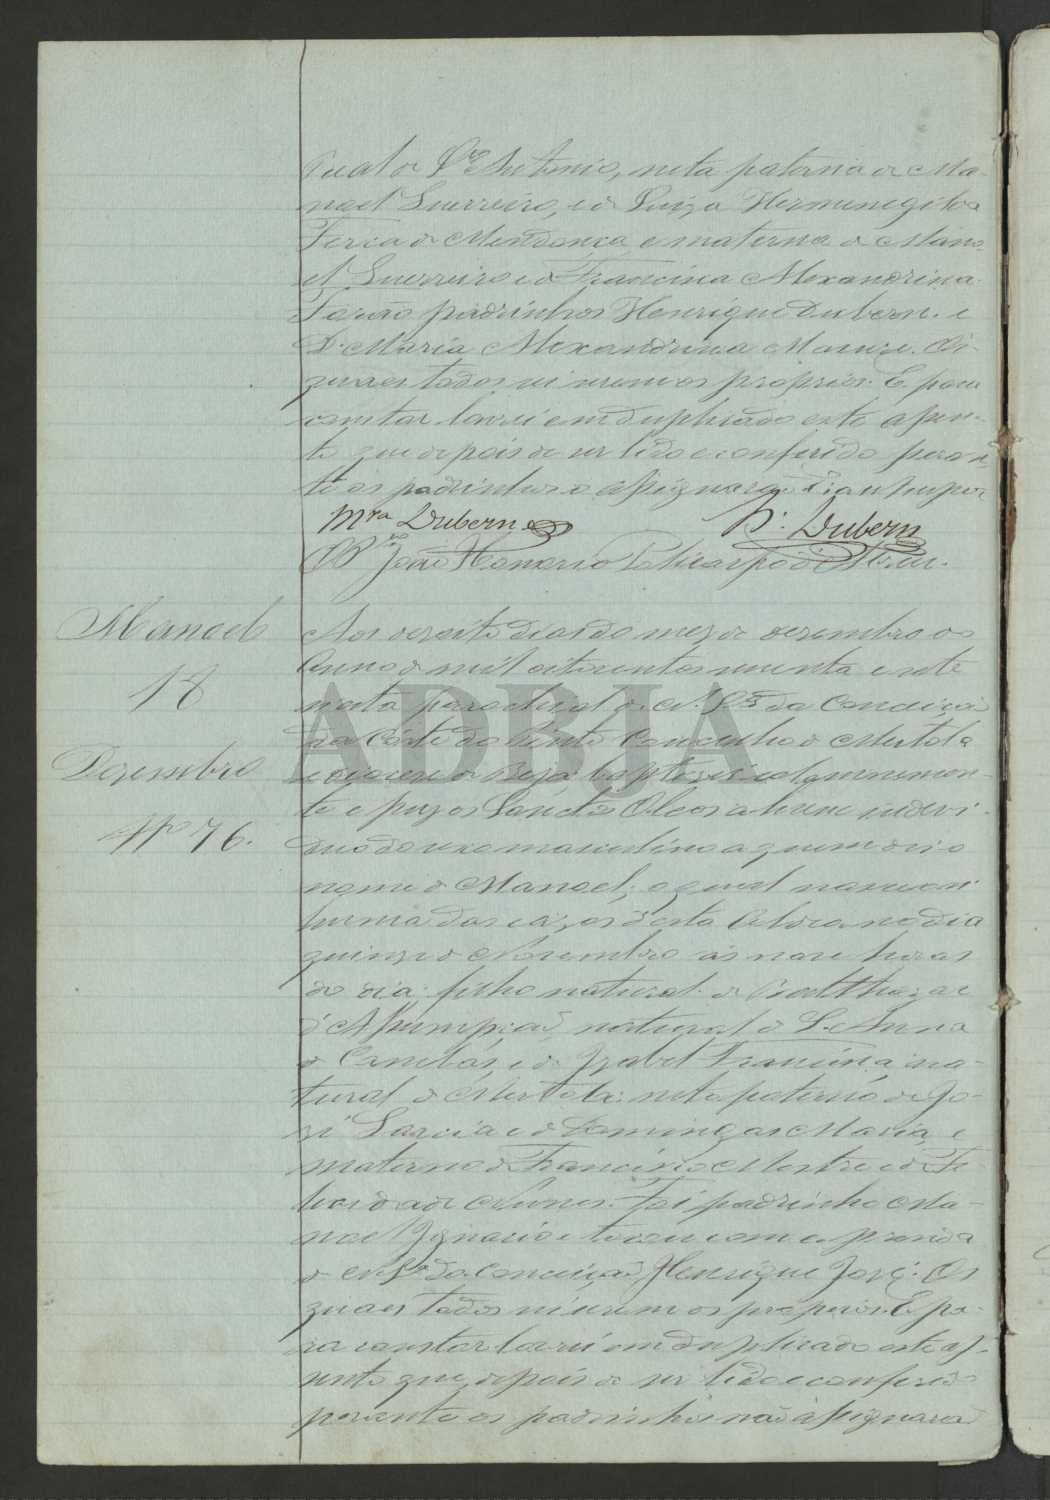 neta paterna de Ma-
noel Guerreiro, e de Luiza Hermenegilda
de Mendonça, e materna de Mano-
el Guerreiro e de Francina Alexandrina.
Forão padrinhos Henrique Dubern. e
D. Maria Alexandrina Os
quaes todos sei serem os proprios. E para
constar lavrei em duplicado este assen-
to que depois de ser lido e conferido peran-
te os padrinhos assignarão
Mra Dubern H. Dubern
O Pr João Honorio Policarpo
Manoel
18
Dezembro
Nº 76.
Aos dezoito dias do mez de dezembro do
Anno de mil oitocentos e sete
nesta parochial de N. Srª da Conceição
da Corte do Pinto Concelho de Mertola
e diocese de Beja baptizei solemnemen-
te e puz os Sanctos Oleos a hum indevi-
duo do sexo masculino a quem dei o
nome de Manoel; o qual nasceu
no dia
quinze de Novembro ás nove horas
do dia; filho natural de Balthazar
d'Assumpção, natural de S. Anna
de Cambas, e de Izabel Francina, na-
tural de Mertola; neto paterno de Jo-
sé Garcia e de Domingas Maria, e
materno de Francisco Mestre e de Fe-
licidade Nunes. Foi padrinho Ma-
noel Ignacio e tocou com a prenda
de N. Srª da Conceição, Henrique José. Os
quaes todos sei serem os proprios. E pa-
ra constar lavrei em duplicado este as-
sento que depois de ser lido e conferido
perante os padrinhos não assignarão
ADBJA